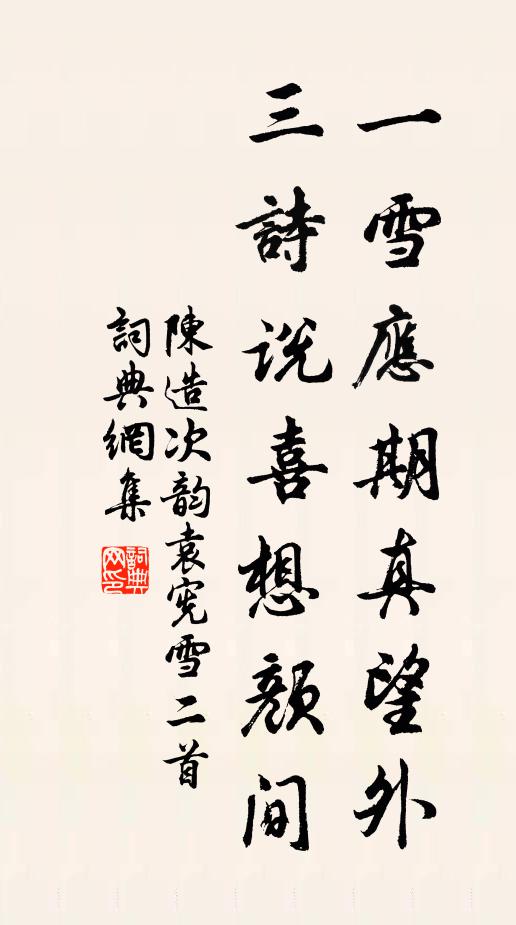 一雪應期真望外
三詩说喜想顔间
陳造次韵袁宪雪二首
詞典網集
詞典
网印